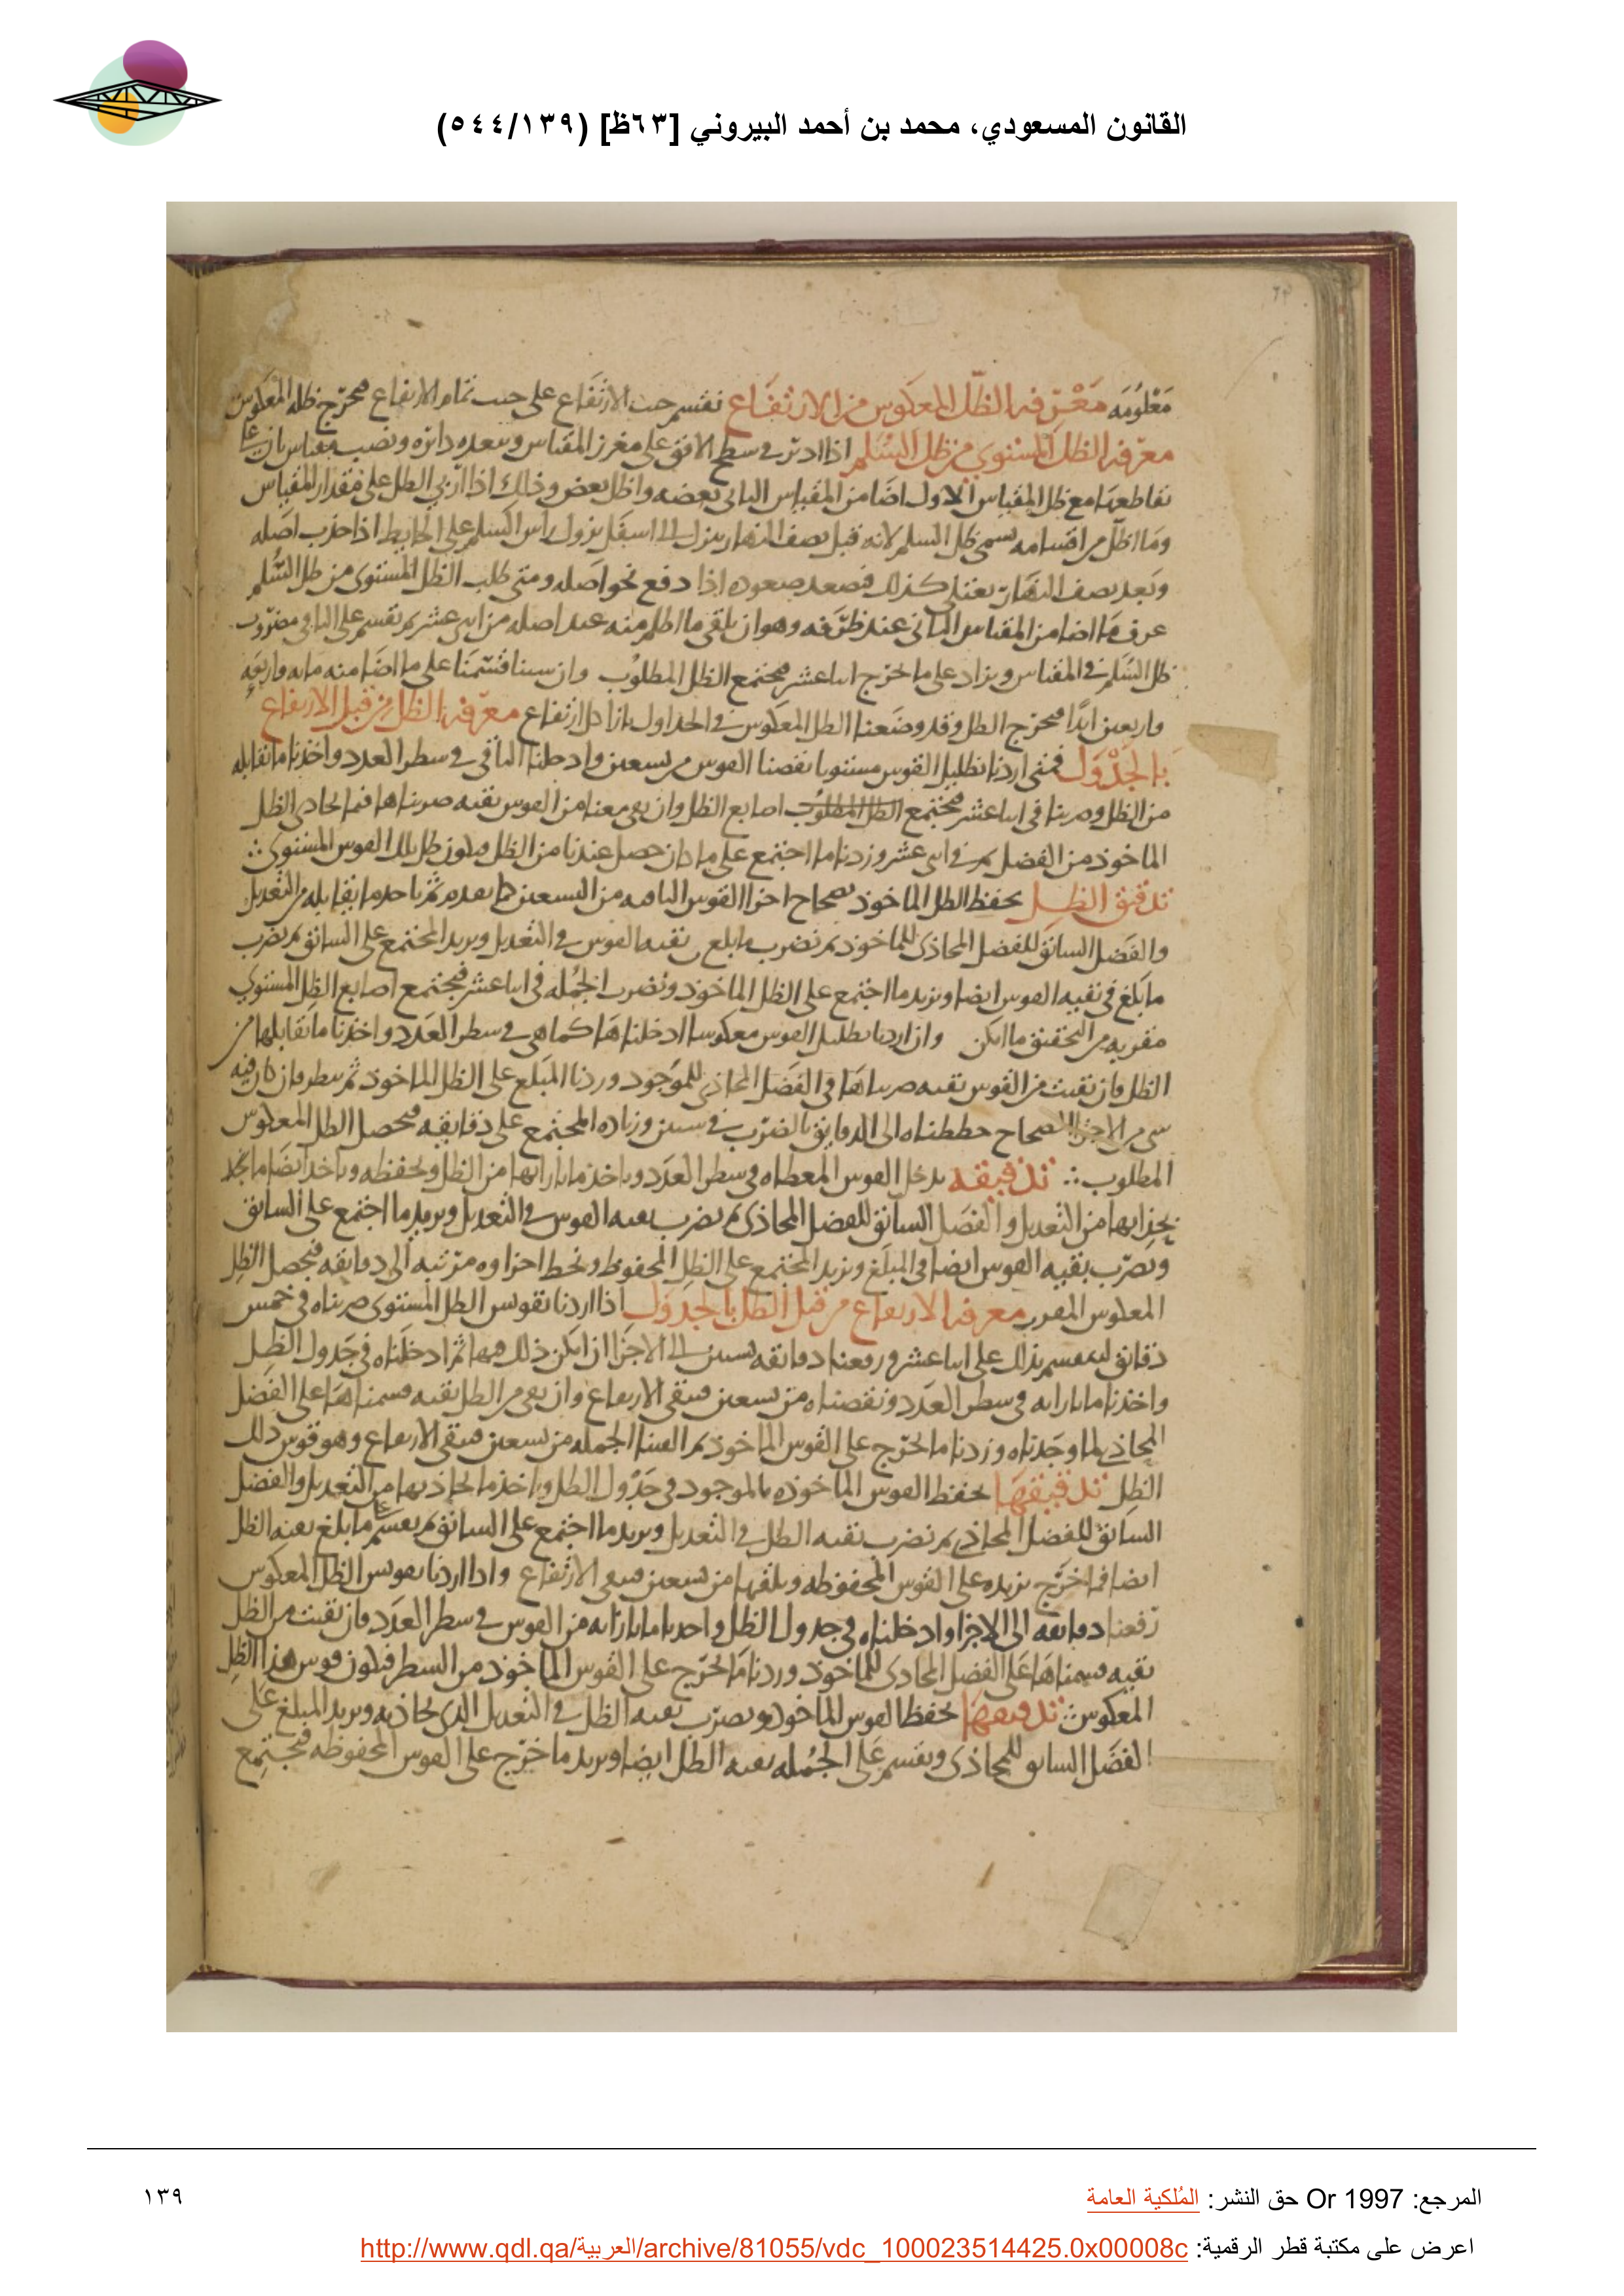 القانون المسعودي، محمد بن أحمد البيروني [٦٣ظ] (٥٤٤/١٣٩)
معلومه معرفه الظل المعكوس من الارتفاع نقسم جيب الارتفاع على جيب تمام الارتفاع فيخرج ظله المعكوس
معرفه الظل المستوى من ظل السلم اذا ادير في سطح الافق على مغرز المقياس وببعده دائره ونصب مقياس ثان على
تقاطعها مع ظل المقياس الاول اضا من المقياس الثانى بعضه واظل بعض وذلك اذا اربى الظل على مقدار المقياس
وما اظل من اقسامه يسمى ظل السلم لانه قبل نصف النهار ينزل الى اسفل نزول راس السلم على الحايط اذا جذب اصله
وبعد نصف النهار كذلك فيصعد صعوده اذا دفع نحو اصله ومتى طلب الظل المستوى من ظل السلم
عرف ما اضا من المقياس الثانى عند طرفه وهو ان يلقى ما اظل منه عند اصله من اثنى عشر ثم نقسم على الباقى مضروب
ظل السلم في المقياس ويزاد على ما يخرج اثنا عشر فيجتمع الظل المطلوب وان شينا قسمنا على ما اضا منه مايه واربعه
واربعين ابدا فيخرج الظل وقد وضعنا الظل المعكوس في الجداول بازا كل ارتفاع معرفه الظل من قبل الارتفاع
بالجدول فمتى اردنا تظليل القوس مستويا نقصنا القوس من تسعين وادخلنا الباقى في سطر العدد واخذنا ما تقابله
من الظل وضربناه فى اثنا عشر فيجتمع الظل المطلوب اصابع الظل وان بقى معنا من القوس بقيه ضربناها فيما يحاذى الظل
الماخوذ من الفضل ثم في اثنى عشر وزدنا ما اجتمع على ما كان حصل عندنا من الظل فيكون ظل تلك القوس المستوى
تدقيق الظل نحفظ الظل الماخوذ بصحاح اجزا القوس الباقيه من التسعين كما بعده ثم ناخذ ما يقابله من التعديل
والفضل السابق للفضل المحاذى للماخوذ ثم نضرب بقيه القوس في التعديل ونزيد المجتمع على السابق ثم نضرب
ما بلغ فى بقيه القوس ايضا ونزيد ما اجتمع على الظل الماخوذ ونضرب الجمله فى اثنا عشر فيجتمع اصابع الظل المستوى
مقربه من التحقيق ما امكن وان اردنا تظليل القوس معكوسا ادخلناها كما هى في سطر العدد واخذنا ما تقابلها من
الظل فان بقيت من القوس بقيه ضربناها فى الفضل المحاذى للموجود وزدنا المبلغ على الظل الماخوذ ثم ننظر فان كان فيه
شى من الاجزا الصحاح حططناه الى الدقايق بالضرب في ستين وزياده المجتمع على دقايقه فيحصل الظل المعكوس
المطلوب تدقيقه ندخل القوس المعطاه فى سطر العدد وناخذ ما بازائها من الظل ونحفظه وناخذ ايضا ما نجد
بحذايها من التعديل والفضل السابق للفضل المحاذى ثم نضرب بقيه القوس في التعديل ونزيد ما اجتمع على السابق
ونضرب بقيه القوس ايضا فى المبلغ ونزيد المجتمع على الظل المحفوظ ونحط اجزاوه مرتبه الى دقايقه فيحصل الظل
المعكوس المقرب معرفه الارتفاع من قبل الظل بالجدول اذا اردنا تقويس الظل المستوى ضربناه فى خمس
دقايق لينقسم بذلك على اثنا عشر ورفعنا دقائقه بستين الى الاجزا ان امكن ذلك فيها ثم ادخلناه فى جدول الظل
واخذنا ما بازائه فى سطر العدد ونقصناه من تسعين فيبقى الارتفاع وان بقى من الظل بقيه قسمناها على الفضل
المحاذى لما وجدناه وزدنا ما يخرج على القوس الماخوذ ثم القينا الجمله من تسعين فيبقى الارتفاع وهو قوس ذلك
الظل تدقيقها نحفظ القوس الماخوذه بالموجود فى جدول الظل وناخذ ما يحاذيها من التعديل والفضل
السابق للفضل المحاذى ثم نضرب بقيه الظل في التعديل ونزيد ما اجتمع على السابق ثم نقسم على ما بلغ بقيه الظل
ايضا فما خرج نزيده على القوس المحفوظه ونلقيها من تسعين فيبقى الارتفاع واذا اردنا تقويس الظل المعكوس
رفعنا دقايقه الى الاجزا وادخلناه فى جدول الظل واخذنا ما بازائه من القوس في سطر العدد فان بقيت من الظل
بقيه قسمناها على الفضل المحاذى للماخوذ وزدنا ما يخرج على القوس الماخوذ من السطر فيكون قوس هذا الظل
المعكوس تدقيقها نحفظ القوس الماخوذه ونضرب بقيه الظل في التعديل الذى يحاذيه ونزيد المبلغ على
الفضل السابق للمحاذى ونقسم على الجمله بقيه الظل ايضا ونزيد ما خرج على القوس المحفوظه فيجتمع
المرجع: Or 1997 حق النشر: المُلكية العامة
١٣٩
اعرض على مكتبة قطر الرقمية: http://www.qdl.qa/العربية/archive/81055/vdc_100023514425.0x00008c